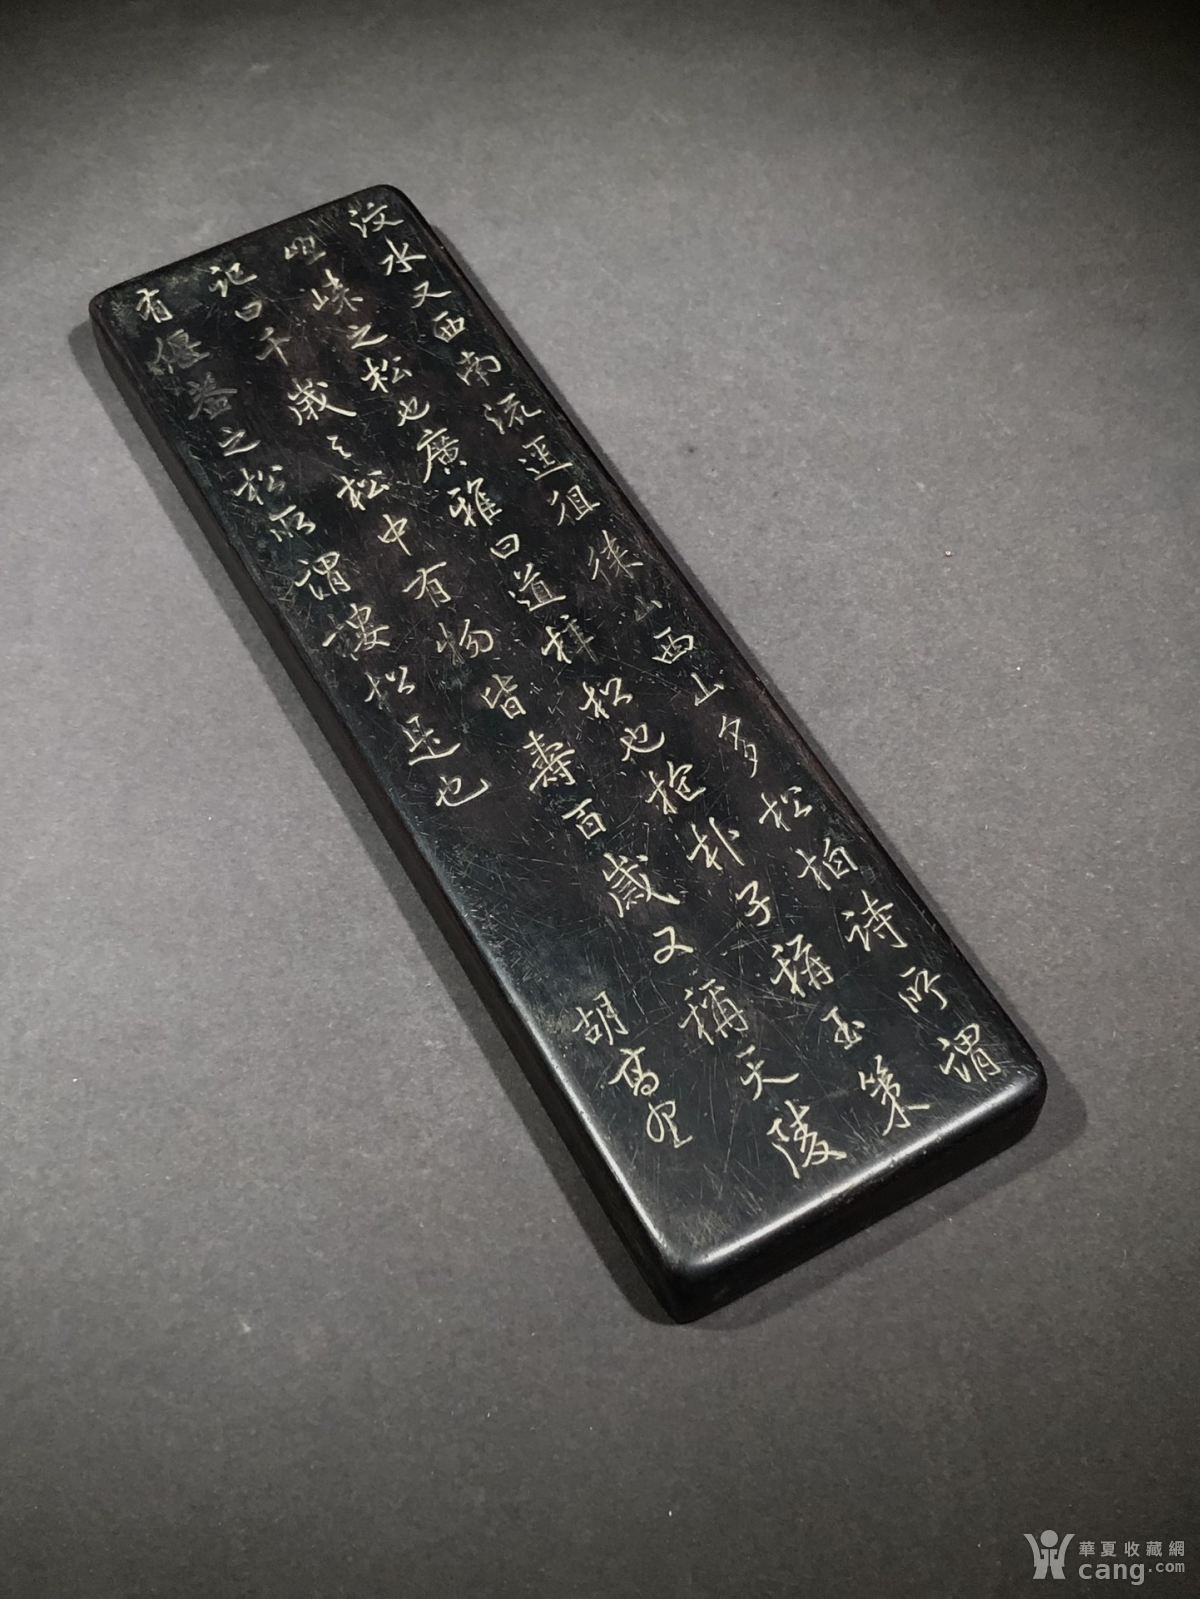 汶水又西南流逕徂徠山西山多松柏诗所谓
徂崃之松也廣雅曰道梓松也抱朴子稱玉策
记曰千歲之松中有物皆壽百歲又稱天陵
有偃盖之松所谓樓松是也
胡高
華夏收藏網
cang.com